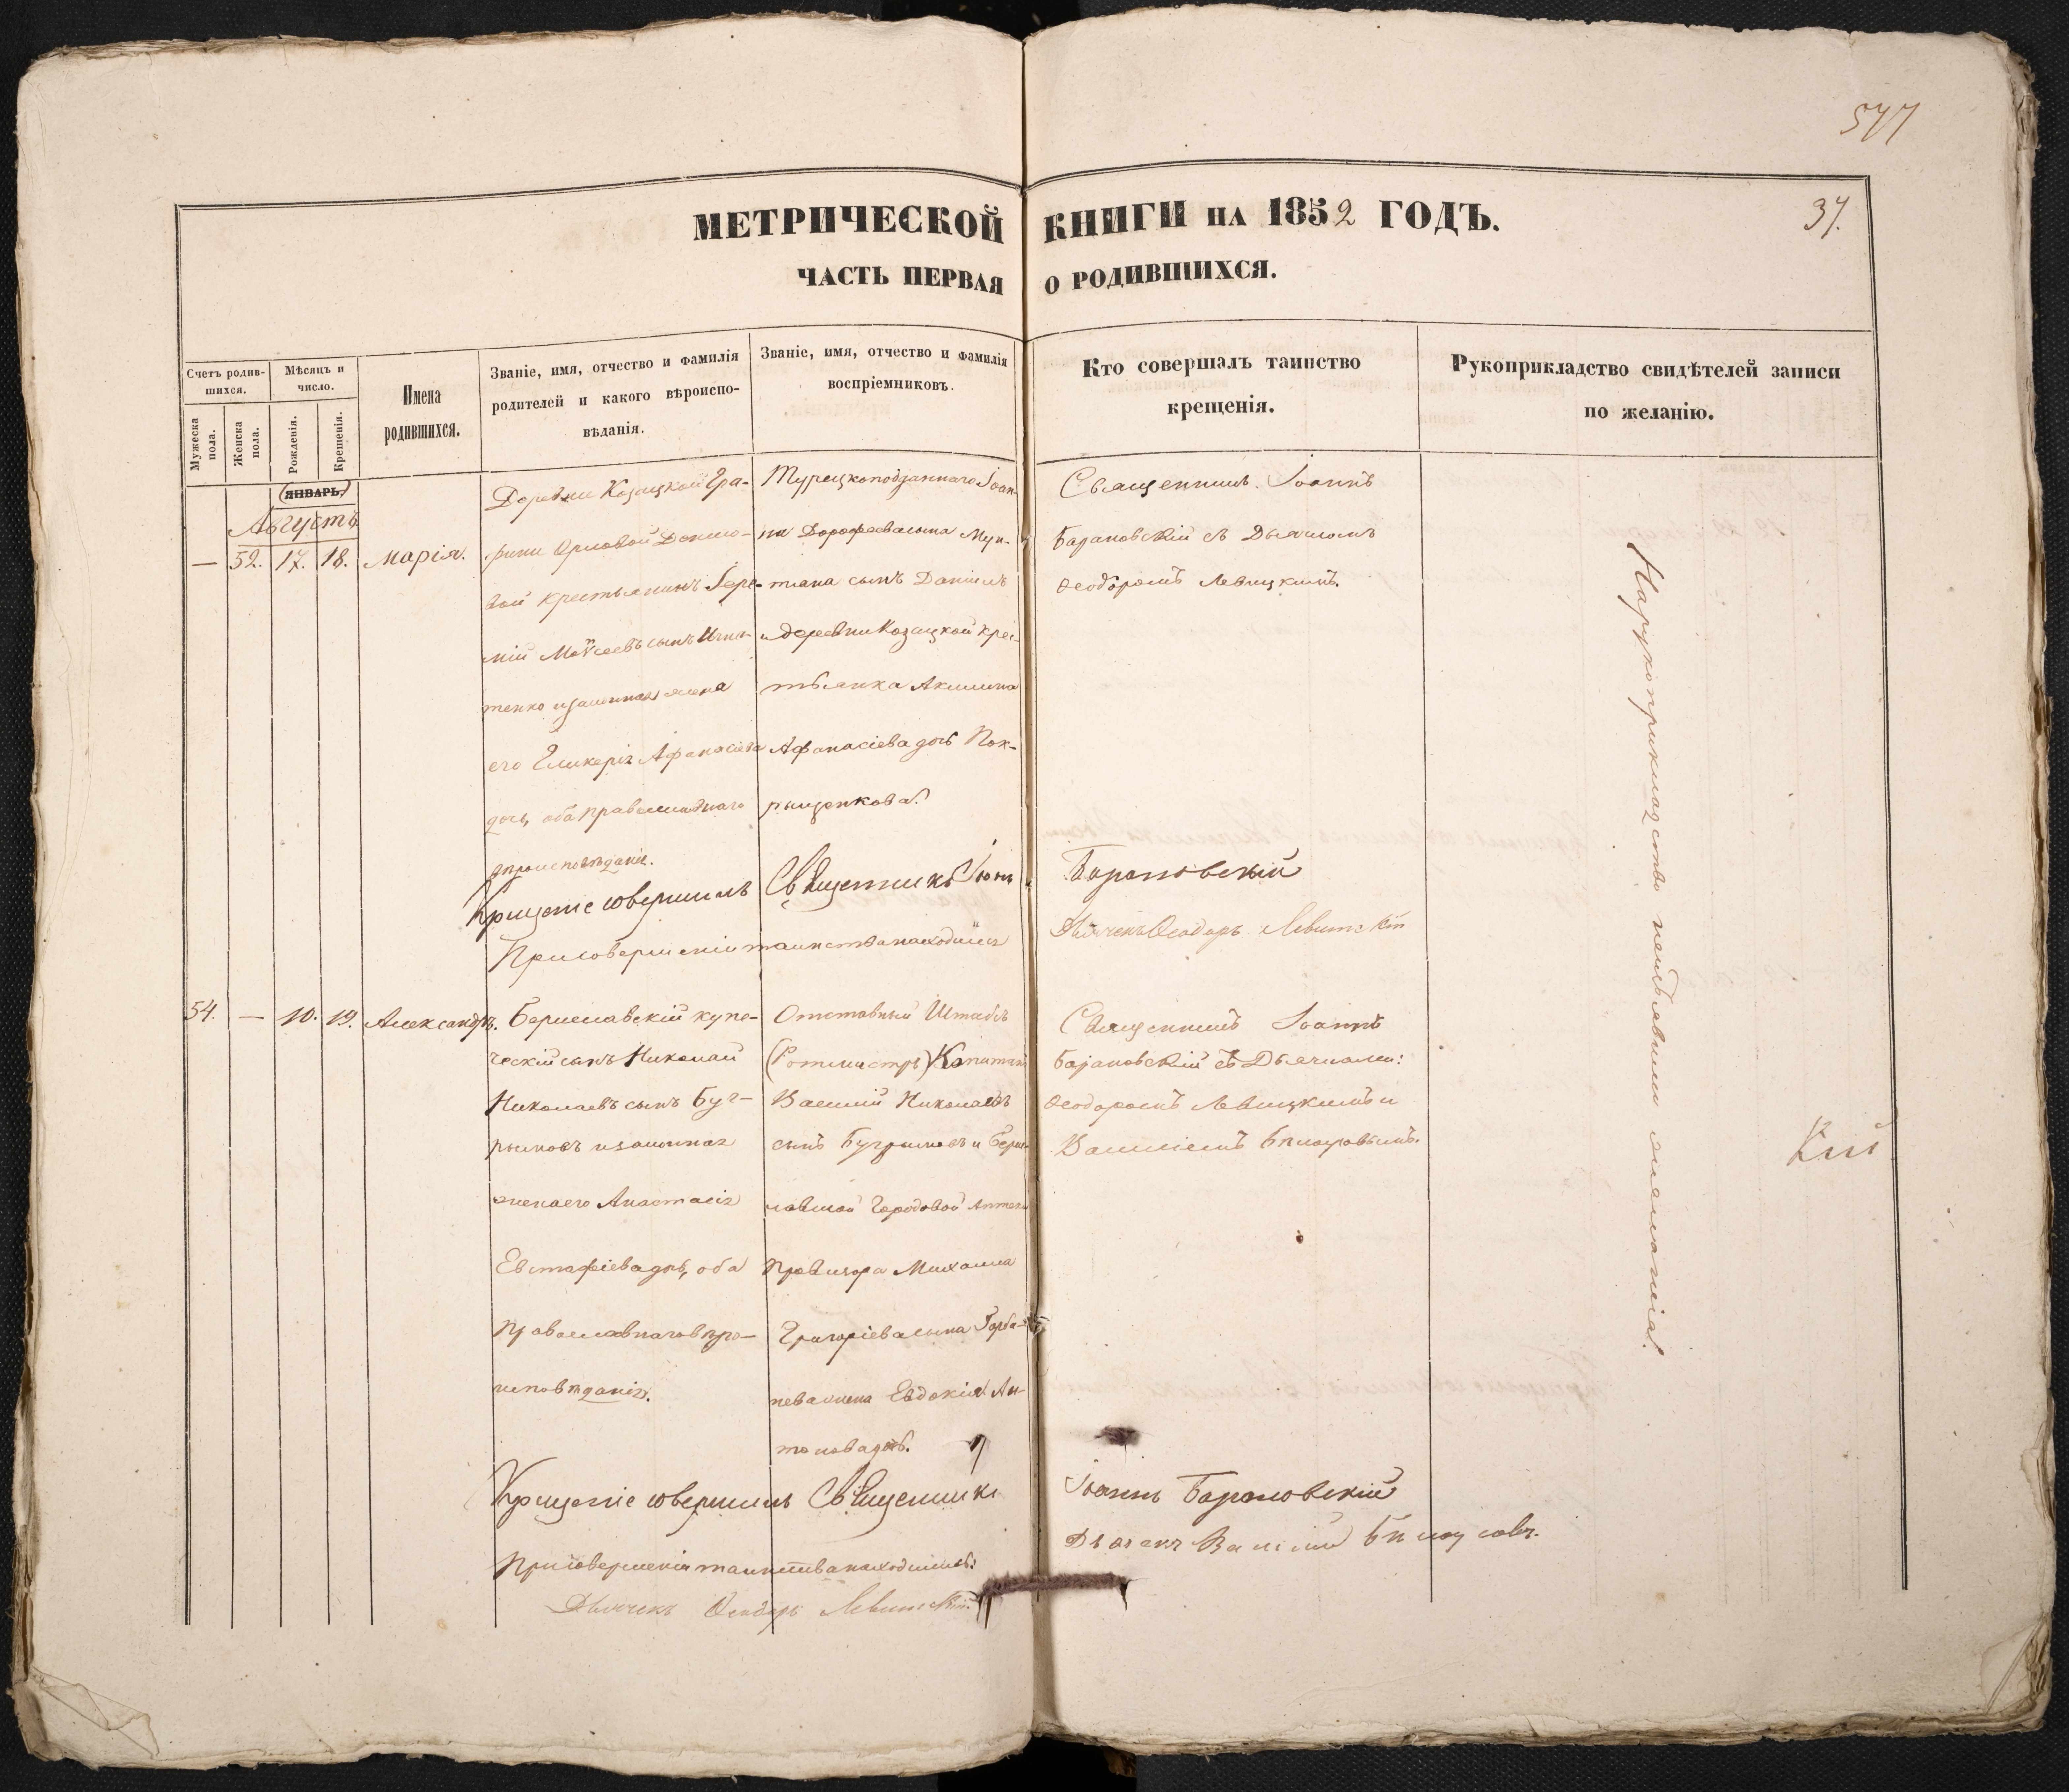 577
МЕТРИЧЕСКОЙ КНИГИ НА 1852 ГОДЪ.
37.
ЧАСТЬ ПЕРВАЯ О РОДИВШИХСЯ.
Счетъ родив-
шихся.
Мужеска пола.
Женска пола.
Мѣсяцъ и число.
Рожденія.
Крещенія.
Имена родившихся.
Званіе, имя, отчество и фамилія
родителей и какого вѣроиспо-
вѣданія.
Званіе, имя, отчество и фамилія
воспріемниковъ.
Кто совершалъ таинство
крещенія.
Рукоприкладство свидѣтелей записи
по желанію.
ЯНВАРЬ.
Августъ
— 52. 17. 18. Марія.
Деревни Козацкой Гра-
фини Орловой Денисо-
вой крестьянинъ Іере-
мій Моѵсеевъ сынъ Игна-
тенко и законная жена
его Гликерія Афанасіева
дочь, оба православнаго
вѣроисповѣданія.
Турецкоподданнаго Іоан-
на Дорофеева сына Мун-
тяна сынъ Даніилъ
и деревни Козацкой крес-
тьянка Акилина
Афанасіева дочь Пок-
рыщенкова.
Священникъ Іоаннъ
Барановскій съ Дьячкомъ
Ѳеодоромъ Левицкимъ.
Крещеніе совершилъ Священникъ Іоаннъ Барановскій
При совершеніи таинства находился Дьячекъ Ѳеодоръ Левитскій
54. — 10. 19. Александръ.
Бериславскій купе-
ческій сынъ Николай
Николаевъ сынъ Буг-
рымовъ и законная
жена его Анастасія
Евстафіева дочь, оба
Православнаго вѣро-
исповѣданія.
Отставный Штабсъ
(Ротмистръ) Капитанъ
Василій Николаевъ
сынъ Бугрымовъ и Берис-
лавской Городовой Аптеки
Провизора Михаила
Григоріева сына Горба-
нева жена Евдокія Ан-
тонова дочь.
Священникъ Іоаннъ
Барановскій съ Дьячками:
Ѳеодоромъ Левицкимъ и
Василіемъ Бѣлоусовымъ.
Крещеніе совершилъ Священникъ Іоаннъ Барановскій
При совершеніи таинства находились:
Дьячекъ Василій Бѣлоусовъ.
Дьячекъ Ѳеодоръ Левитскій
На рукоприкладство неизъявили желанія.